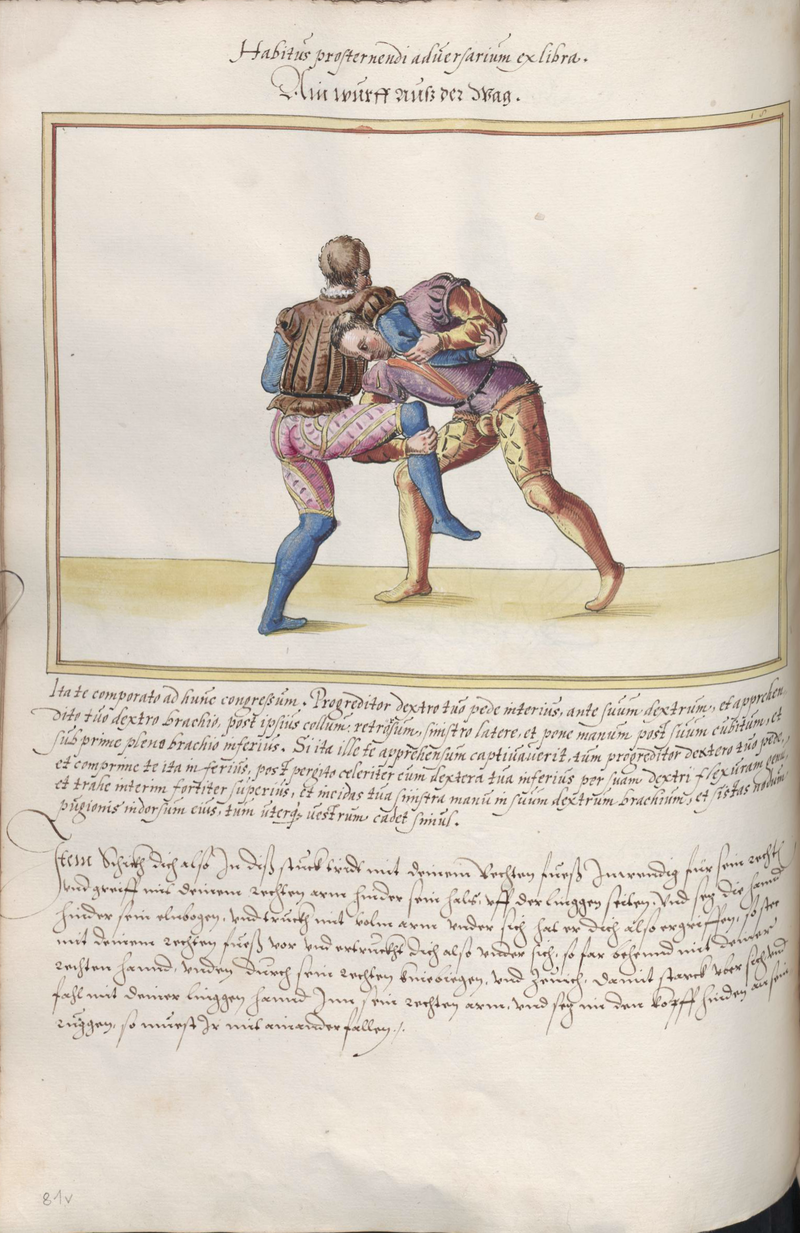 Habitus prosternendi adversarium ex libra.
Ain wurff auß der Wag.
16
Ita te comporato ad hunc congressum. Progreditor dextro tuo pede interius, ante suum dextrum, et apprehen
dito tuo dextro brachio, post ipsius collum, retrorsum, sinistro latere, et pone manum post suum cubitum, et
sub prime pleno brachio inferius. Si ita ille te apprehensum captivaverit, tum progreditor dextero tuo pede,
et comprime te ita inferius, post pergito celeriter cum dextera tua inferius per suam dextri flexuram genu,
et trahe interim fortiter superius, et incidas tua sinistra manu in suum dextrum brachium, et sistas nodum
pugionis in dorsum eius, tum uterq; vestrum cadet simul.
Item Schickh dich also In diß stuckh tridt mit deinem Rechten fuess Inwendig für sein rechten
Vnd greiff mit deinem rechten arm hinder sein hals, vff der linggen seiten, Vnd setz die hannd
hinder sein elnbogen, vnd truckh mit volm arm vnder sich hat er dich also ergriffen, so stee
mit deinem rechten fuess vor vnd ertruckht dich also vnder sich, so far behennd mit deiner
rechten hannd, vnden durch sein rechten kniebiegen, vnd Zeuch, damit starckh vber sich vnd
fahl mit deiner linggen hannd Inn sein rechten arm, vnd setz im den kopff hinden an sein
ruggen, so muest Ir mit ainander fallen ./.
81v